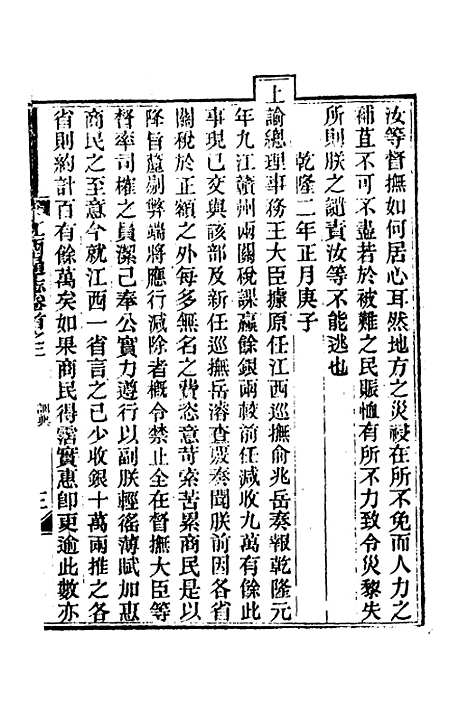 汝等督撫如何居心耳然地方之災祲在所不免而人力之
補苴不可不盡若於被難之民賑恤有所不力致令災黎失
所則朕之譴責汝等不能逃也
乾隆二年正月庚子
上諭總理事務王大臣據原任江西巡撫俞兆岳奏報乾隆元
年九江贛州兩關稅課贏餘銀兩較前任減收九萬有餘此
事現已交與該部及新任巡撫岳濬查覈奏聞朕前因各省
關稅於正額之外每多無名之費恣意苛索苦累商民是以
降旨釐剔弊端將應行減除者概令禁止全在督撫大臣等
督率司榷之員潔己奉公實力遵行以副朕輕徭薄賦加惠
商民之至意今就江西一省言之已少收銀十萬兩推之各
省則約計百有餘萬矣如果商民得霑實惠卽更逾此數亦
江西通志卷首之三
訓典
三